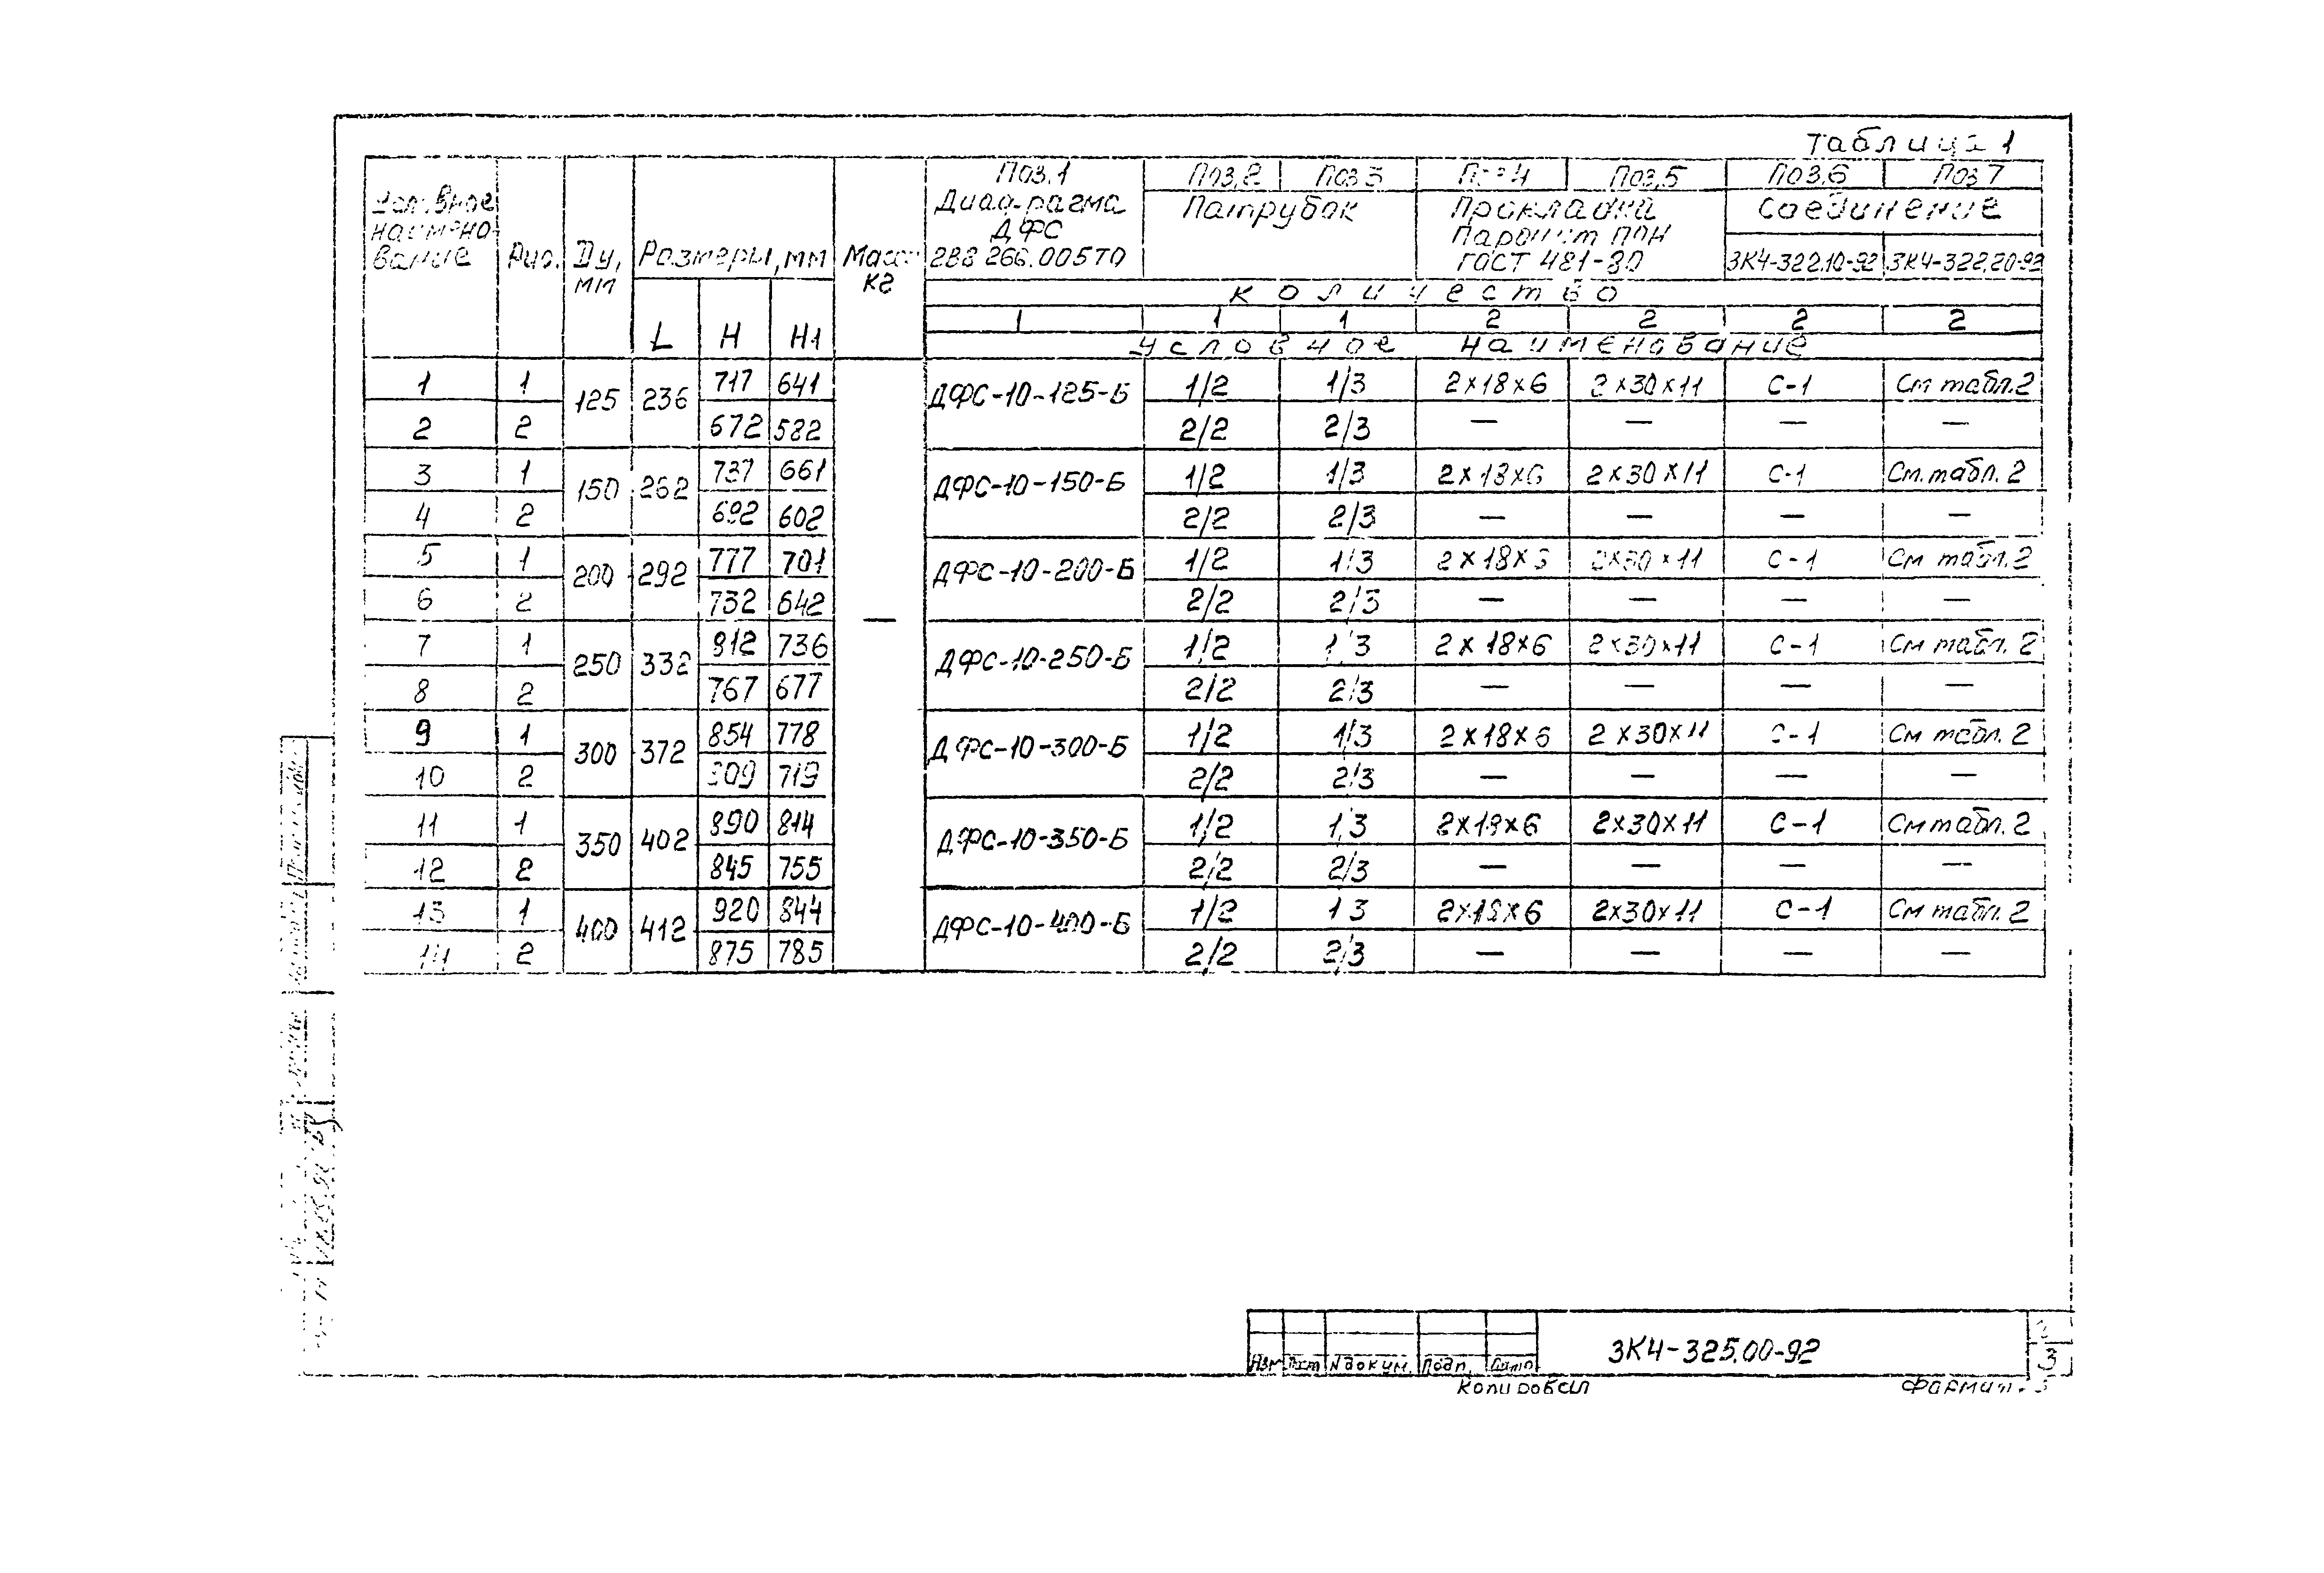 Таблица 1
Условное наимено- вание Рис. Ду, мм Размеры, мм Масса кг Поз.1 Диафрагма ДФС 288 266.005ТО Поз.2 Поз 3 Поз 4 Поз.5 Поз.6 Поз 7
Патрубок Прокладка Паронит ПОН ГОСТ 481-80 Соединение
ЗК4-322.10-92 ЗК4-322.20-92
Количество
L H H1 1 1 1 2 2 2 2
Условное наименование
1 1 125 236 717 641 ДФС-10-125-Б 1/2 1/3 2×18×6 2×30×11 С-1 См табл.2
2 2 672 582 2/2 2/3 — — — —
3 1 150 262 737 661 ДФС-10-150-Б 1/2 1/3 2×18×6 2×30×11 С-1 См. табл. 2
4 2 692 602 2/2 2/3 — — — —
5 1 200 292 777 701 ДФС-10-200-Б 1/2 1/3 2×18×6 2×30×11 С-1 См табл. 2
6 2 732 642 2/2 2/3 — — — —
7 1 250 332 812 736 ДФС-10-250-Б 1/2 1/3 2×18×6 2×30×11 С-1 См табл. 2
8 2 767 677 — 2/2 2/3 — — — —
9 1 300 372 854 778 ДФС-10-300-Б 1/2 1/3 2×18×6 2×30×11 С-1 См табл. 2
10 2 809 719 2/2 2/3 — — — —
11 1 350 402 890 814 ДФС-10-350-Б 1/2 1/3 2×18×6 2×30×11 С-1 См табл. 2
12 2 845 755 2/2 2/3 — — — —
13 1 400 412 920 844 ДФС-10-400-Б 1/2 1/3 2×18×6 2×30×11 С-1 См табл. 2
14 2 875 785 2/2 2/3 — — — —
ЗК4-325.00-92
3
Изм Лист № докум. Подп. Дата
Копировал Формат